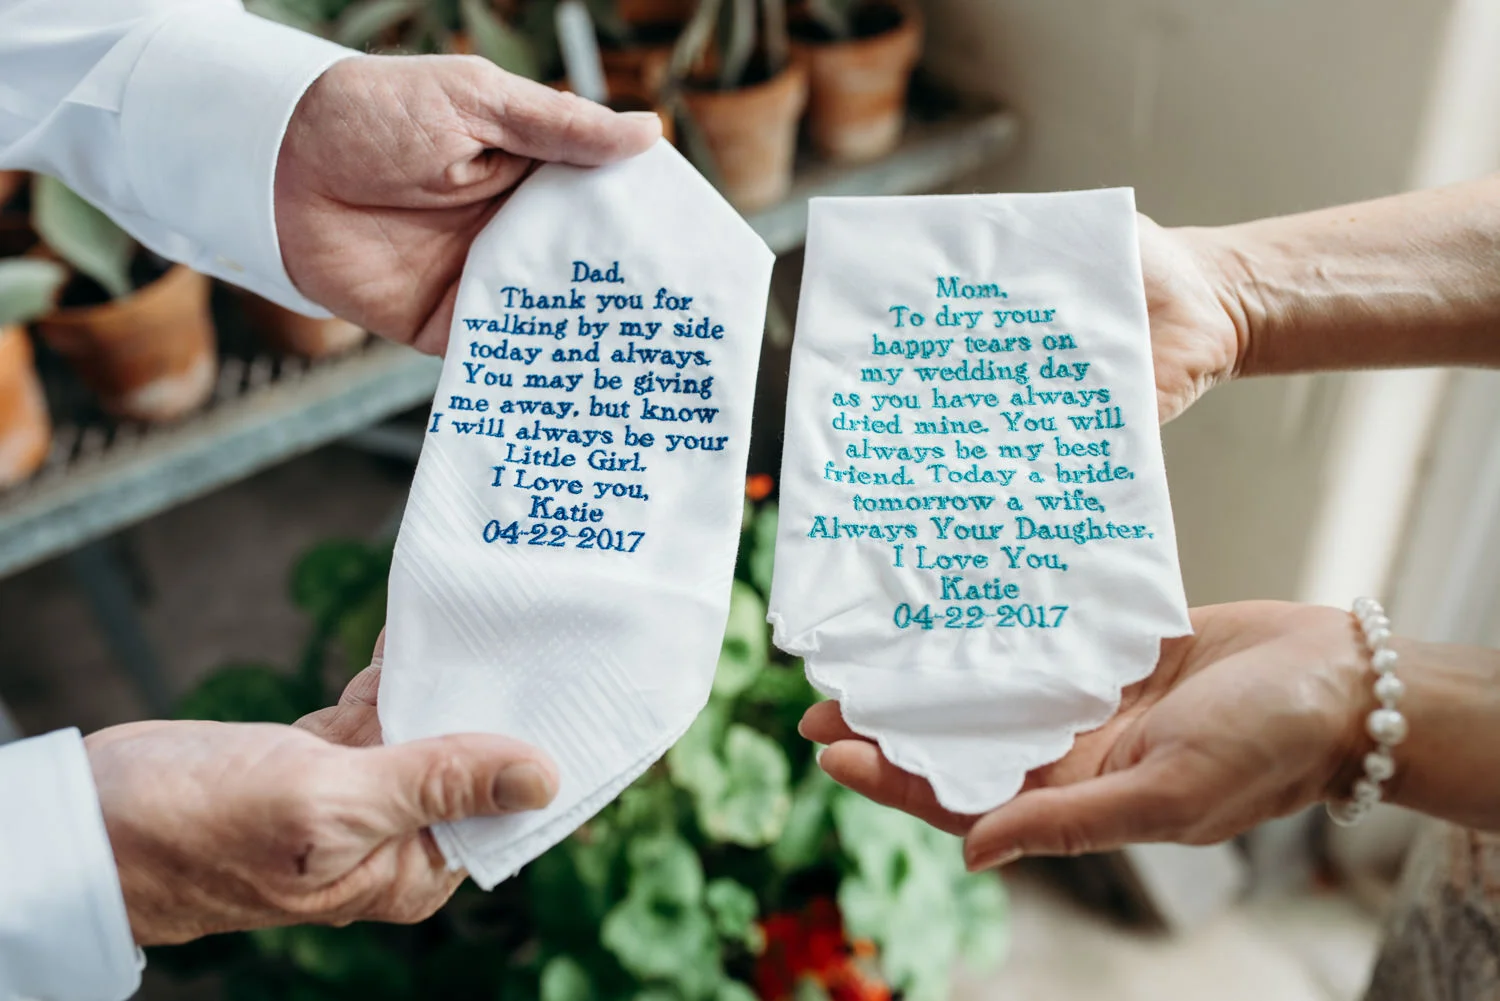 Dad,
Thank you for
walking by my side
today and always.
You may be giving
me away, but know
I will always be your
Little Girl.
I Love you,
Katie
04-22-2017
Mom,
To dry your
happy tears on
my wedding day
as you have always
dried mine. You will
always be my best
friend. Today a bride,
tomorrow a wife,
Always Your Daughter.
I Love You,
Katie
04-22-2017